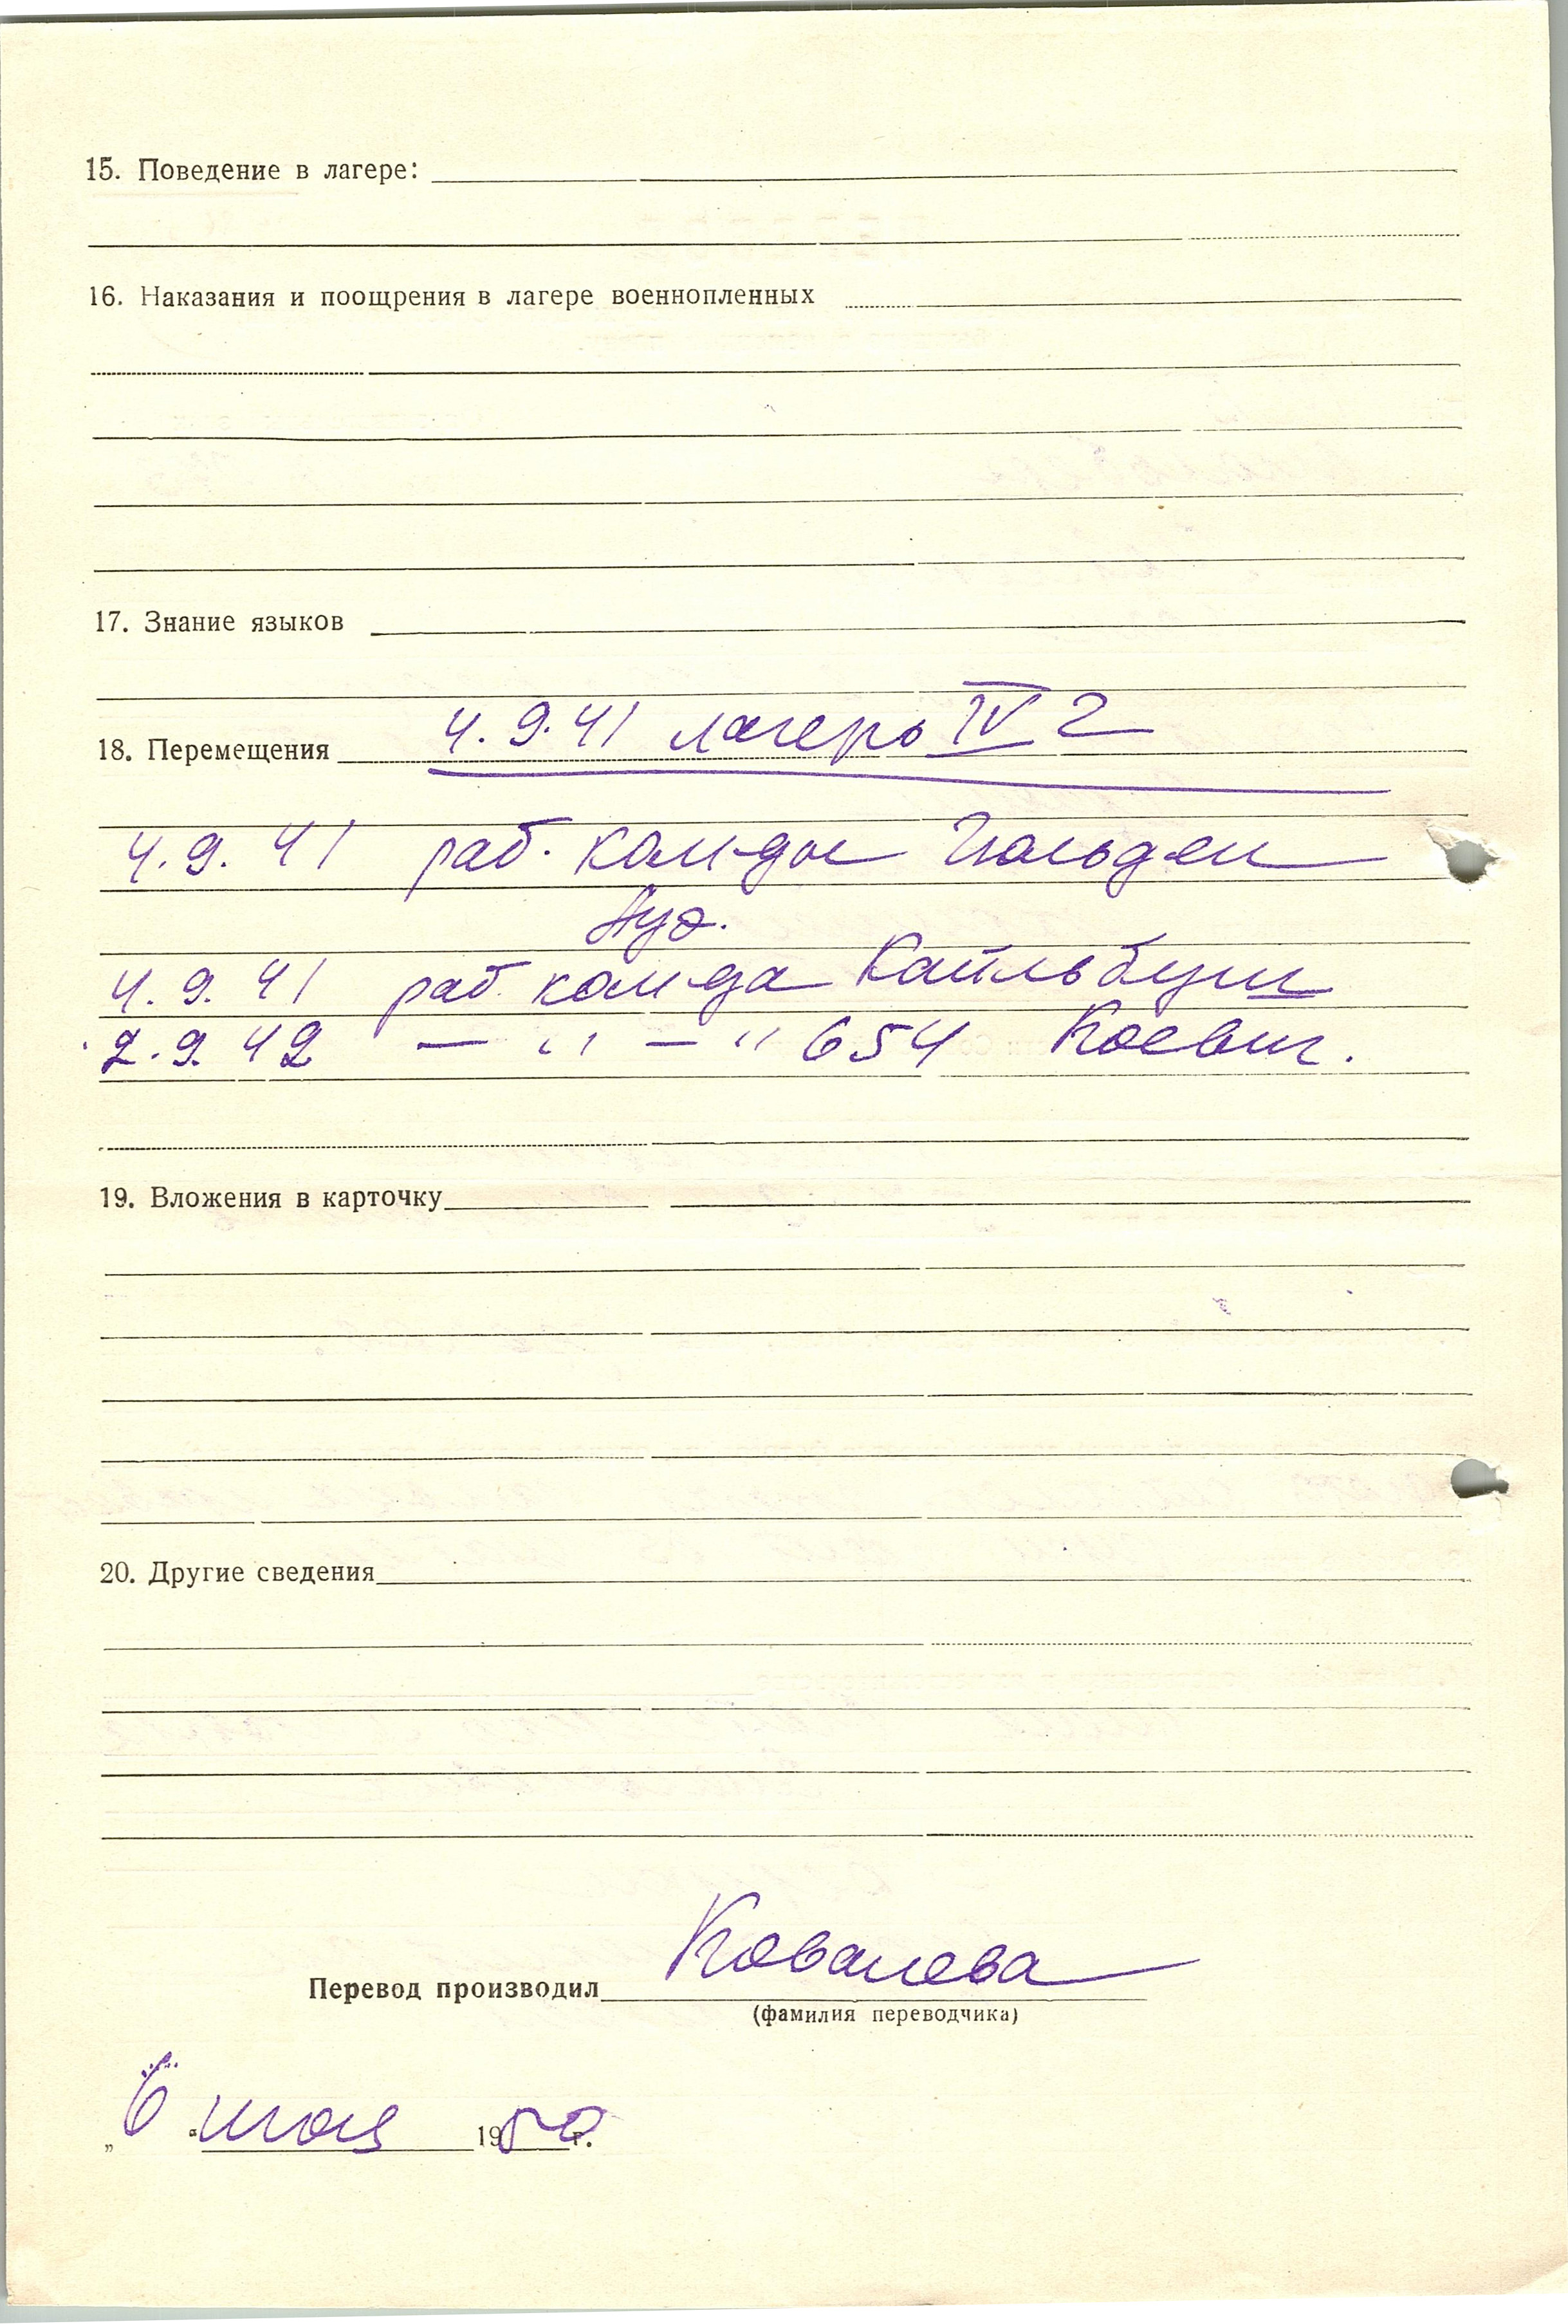 15. Поведение в лагере:
16. Наказания и поощрения в лагере военнопленных
17. Знание языков
18. Перемещения 4.9.41 лагерь IV 2
4.9.41 раб. ком-ды Гюльден
Ауэ.
4.9.41 раб. ком-да Кайльбуш
2.9.42 — " — " 654
19. Вложения в карточку
20. Другие сведения
Перевод производил Ковалева
(фамилия переводчика)
„6“ мая 1950 г.